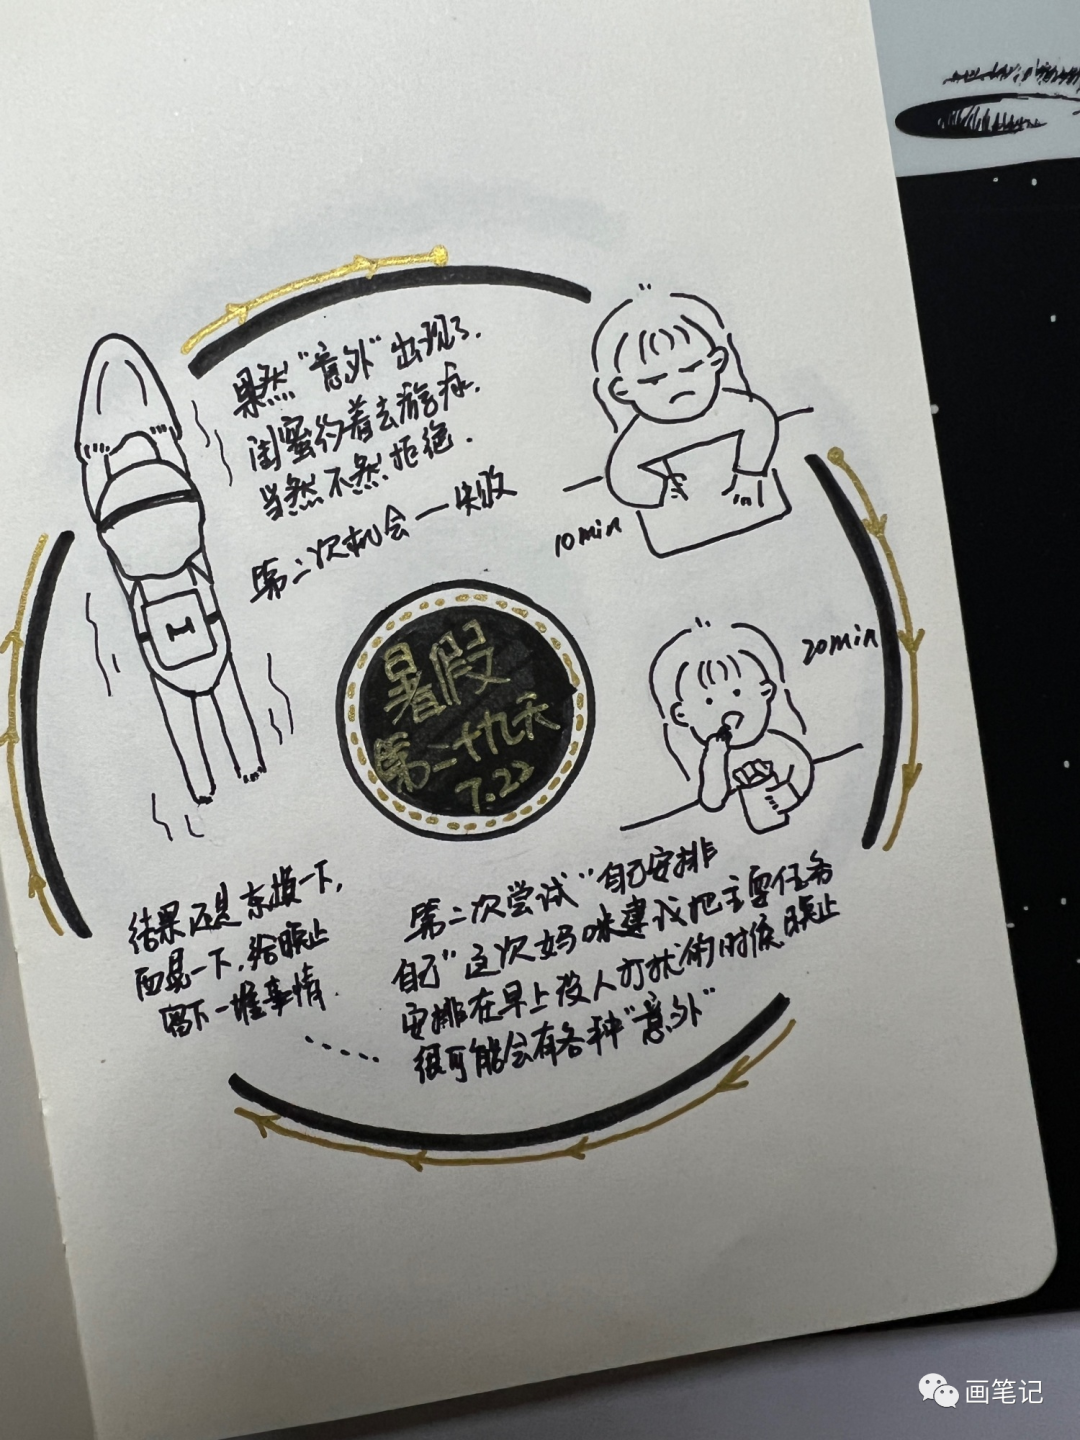 果然“意外”出现了.
闺蜜约着去游泳.
当然不然拒绝.
第二次机会一失败
10min
20min
暑假
第二十九天
7.22
第二次尝试“自己安排
自己”这次妈咪建议把主要任务
安排在早上没人打扰的时候晚上
很可能会有各种“意外”
结果还是东摸一下,
西晃一下,给晚上
留下一堆事情
......
画笔记